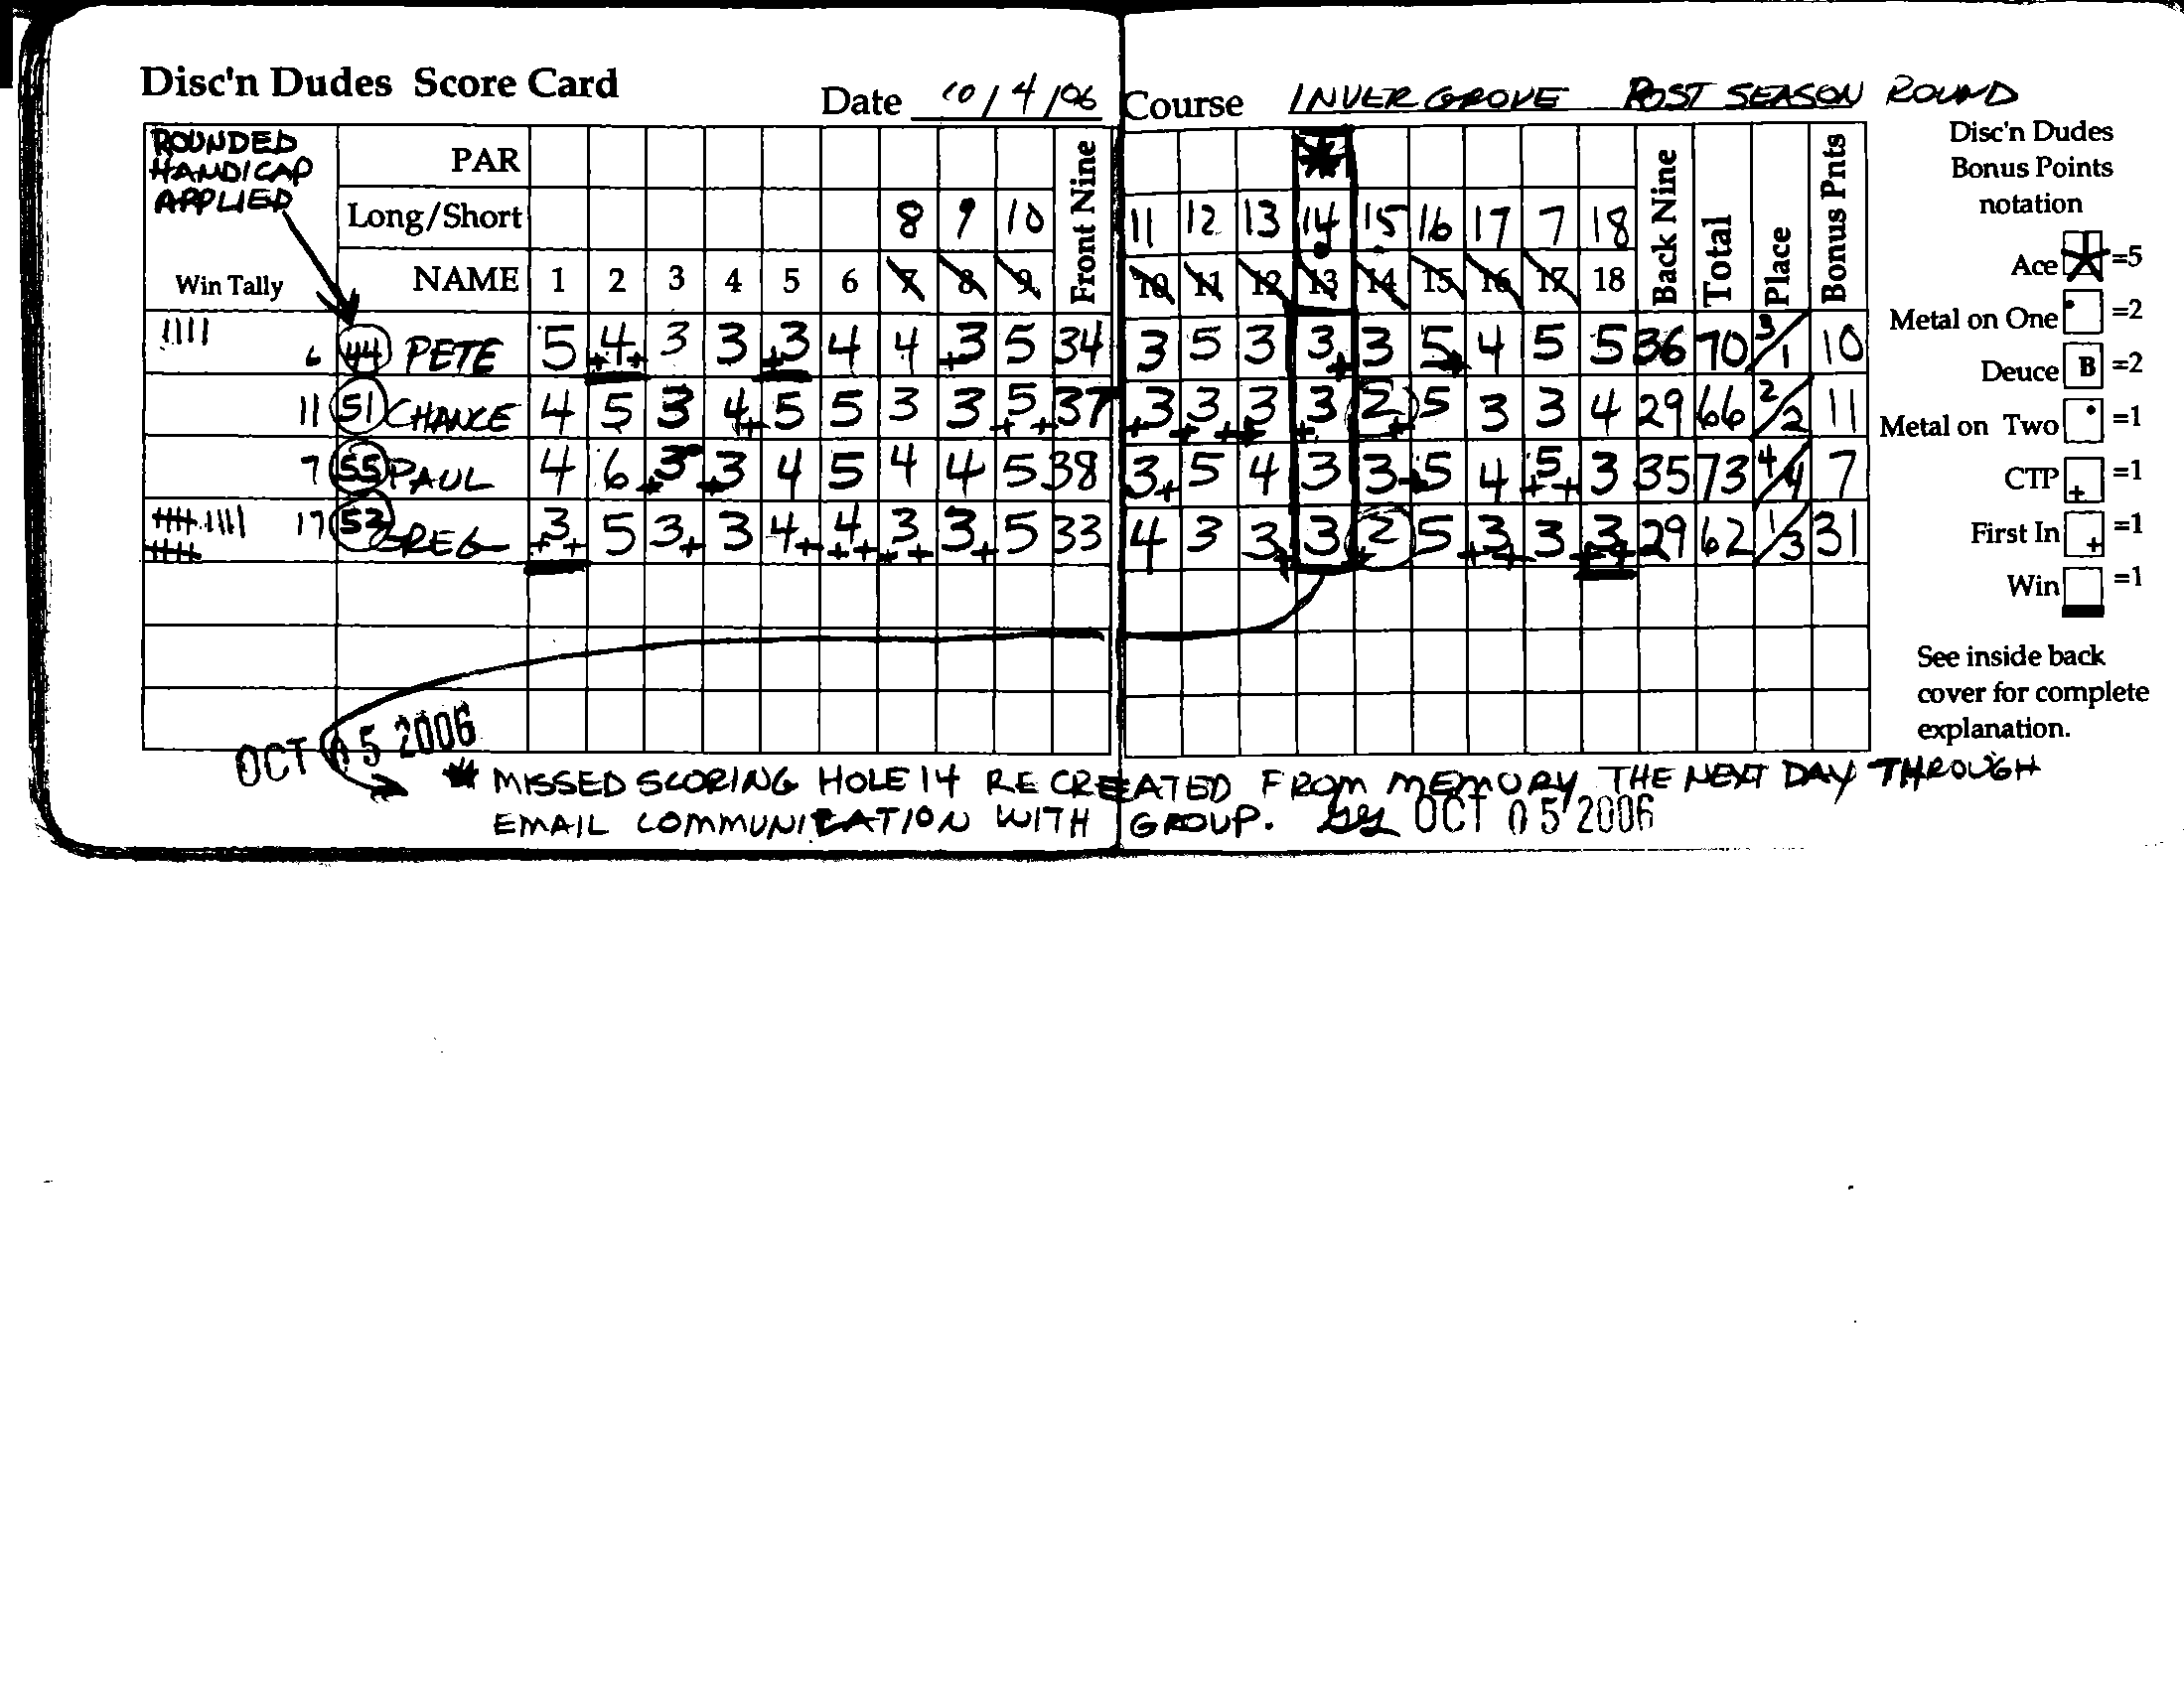 Disc'n Dudes Score Card Date 10/4/06 Course INVER GROVE POST SEASON ROUND
ROUNDED HANDICAP APPLIED
PAR
Long/Short 8 9 10 Front Nine 11 12 13 14 15 16 17 7 18 Back Nine Total Place Bonus Pnts
Win Tally NAME 1 2 3 4 5 6 7 8 9 10 11 12 13 14 15 16 17 18
6 44 PETE 5 4 3 3 3 4 4 3 5 34 3 5 3 3 3 5 4 5 5 36 70 3/1 10
11 51 CHANCE 4 5 3 4 5 5 3 3 5 37 3 3 3 3 2 5 3 3 4 29 66 2/2 11
7 55 PAUL 4 6 3 3 4 5 4 4 5 38 3 5 4 3 3 5 4 5 3 35 73 4/4 7
17 52 GREG 3 5 3 3 4 4 3 3 5 33 4 3 3 3 2 5 3 3 3 29 62 1/3 31
Disc'n Dudes
Bonus Points
notation
Ace =5
Metal on One =2
Deuce B =2
Metal on Two =1
CTP + =1
First In + =1
Win =1
See inside back
cover for complete
explanation.
OCT 05 2006
MISSED SCORING HOLE 14 RE CREATED FROM MEMORY THE NEXT DAY THROUGH
EMAIL COMMUNICATION WITH GROUP. OCT 05 2006